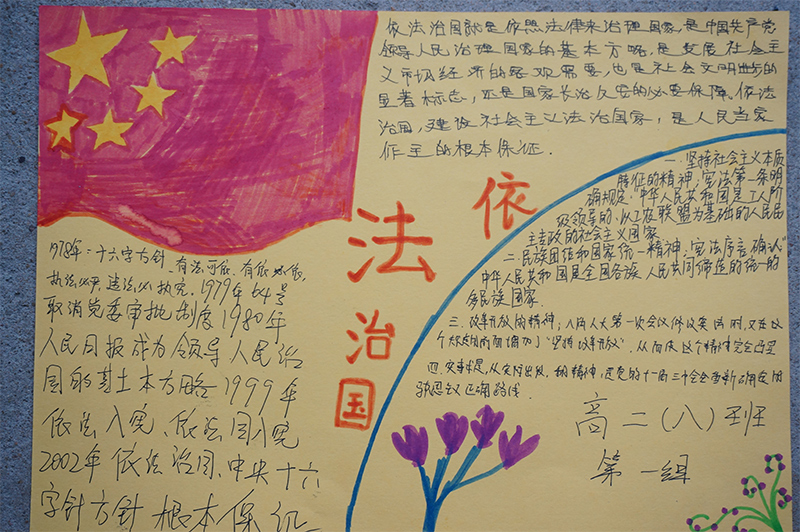 依法治国就是依照法律来治理国家,是中国共产党
领导人民治理国家的基本方略,是发展社会主
义市场经济的客观需要,也是社会文明进步的
显著标志,还是国家长治久安的必要保障。依法
治国,建设社会主义法治国家,是人民当家
作主的根本保证.
依
法
治
国
1978年:十六字方针、有法可依、有法必依、
执法必严、违法必究. 1979年64号
取消党委审批制度 1980年
人民日报成为领导人民治
国的基本方略 1999年
依法入宪、依法国入宪
2002年 依法治国、中央十六
字针方针 根本保证
一.坚持社会主义本质
特征的精神;宪法第一条明
确规定:中华人民共和国是工人阶
级领导的,以工农联盟为基础的人民民
主专政的社会主义国家
二.民族团结和国家统一精神,宪法序言确认
中华人民共和国是全国各族人民共同缔造的统一的
多民族国家.
三、改革开放的精神;八届人大第一次会议修改宪法时,又在这
个增加了"坚持改革开放",从而使这个精神完全
四.实事求是,从实际出发的精神,十一届三中全会重新确立
正确路线
高二(八)班
第一组